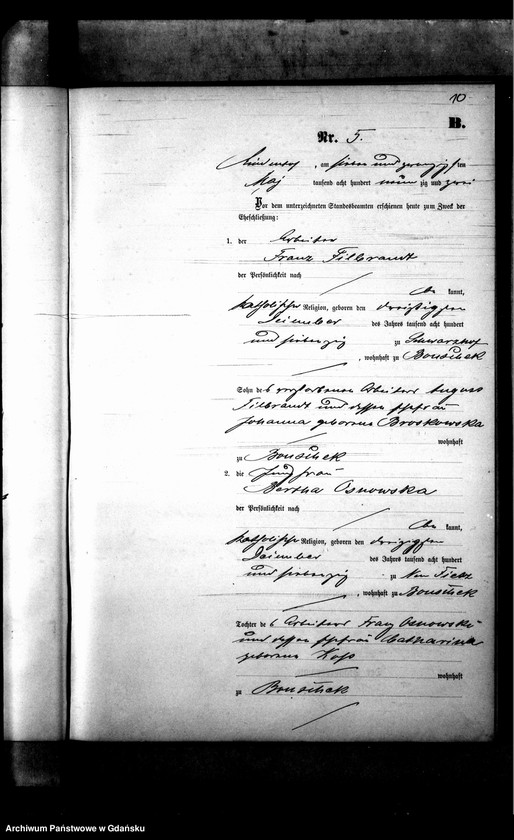 10
B.
Nr. 5.
am sieben und zwanzigsten
Maj tausend acht hundert neunzig und zwei
Vor dem unterzeichneten Standesbeamten erschienen heute zum Zweck der
Eheschließung:
1. der Arbeiter
Franz Filbrandt
der Persönlichkeit nach
kannt,
katholischer Religion, geboren den dreißigsten
Dezember des Jahres tausend acht hundert
und siebenzig zu Schwarzhof
, wohnhaft zu Bouschek
Sohn des verstorbenen Arbeiters August
Filbrandt und dessen Ehefrau
Johanna geborene Broskowska
wohnhaft
zu Bouschek
2. die Jungfrau
Bertha Osnowska
der Persönlichkeit nach
kannt,
katholischer Religion, geboren den
Dezember des Jahres tausend acht hundert
und siebenzig zu Neu
, wohnhaft zu Bouschek
Tochter des Arbeiters Franz Osnowski
und dessen Ehefrau Catharina
geborene Koss
wohnhaft
zu Bouschek
Archiwum Państwowe w Gdańsku